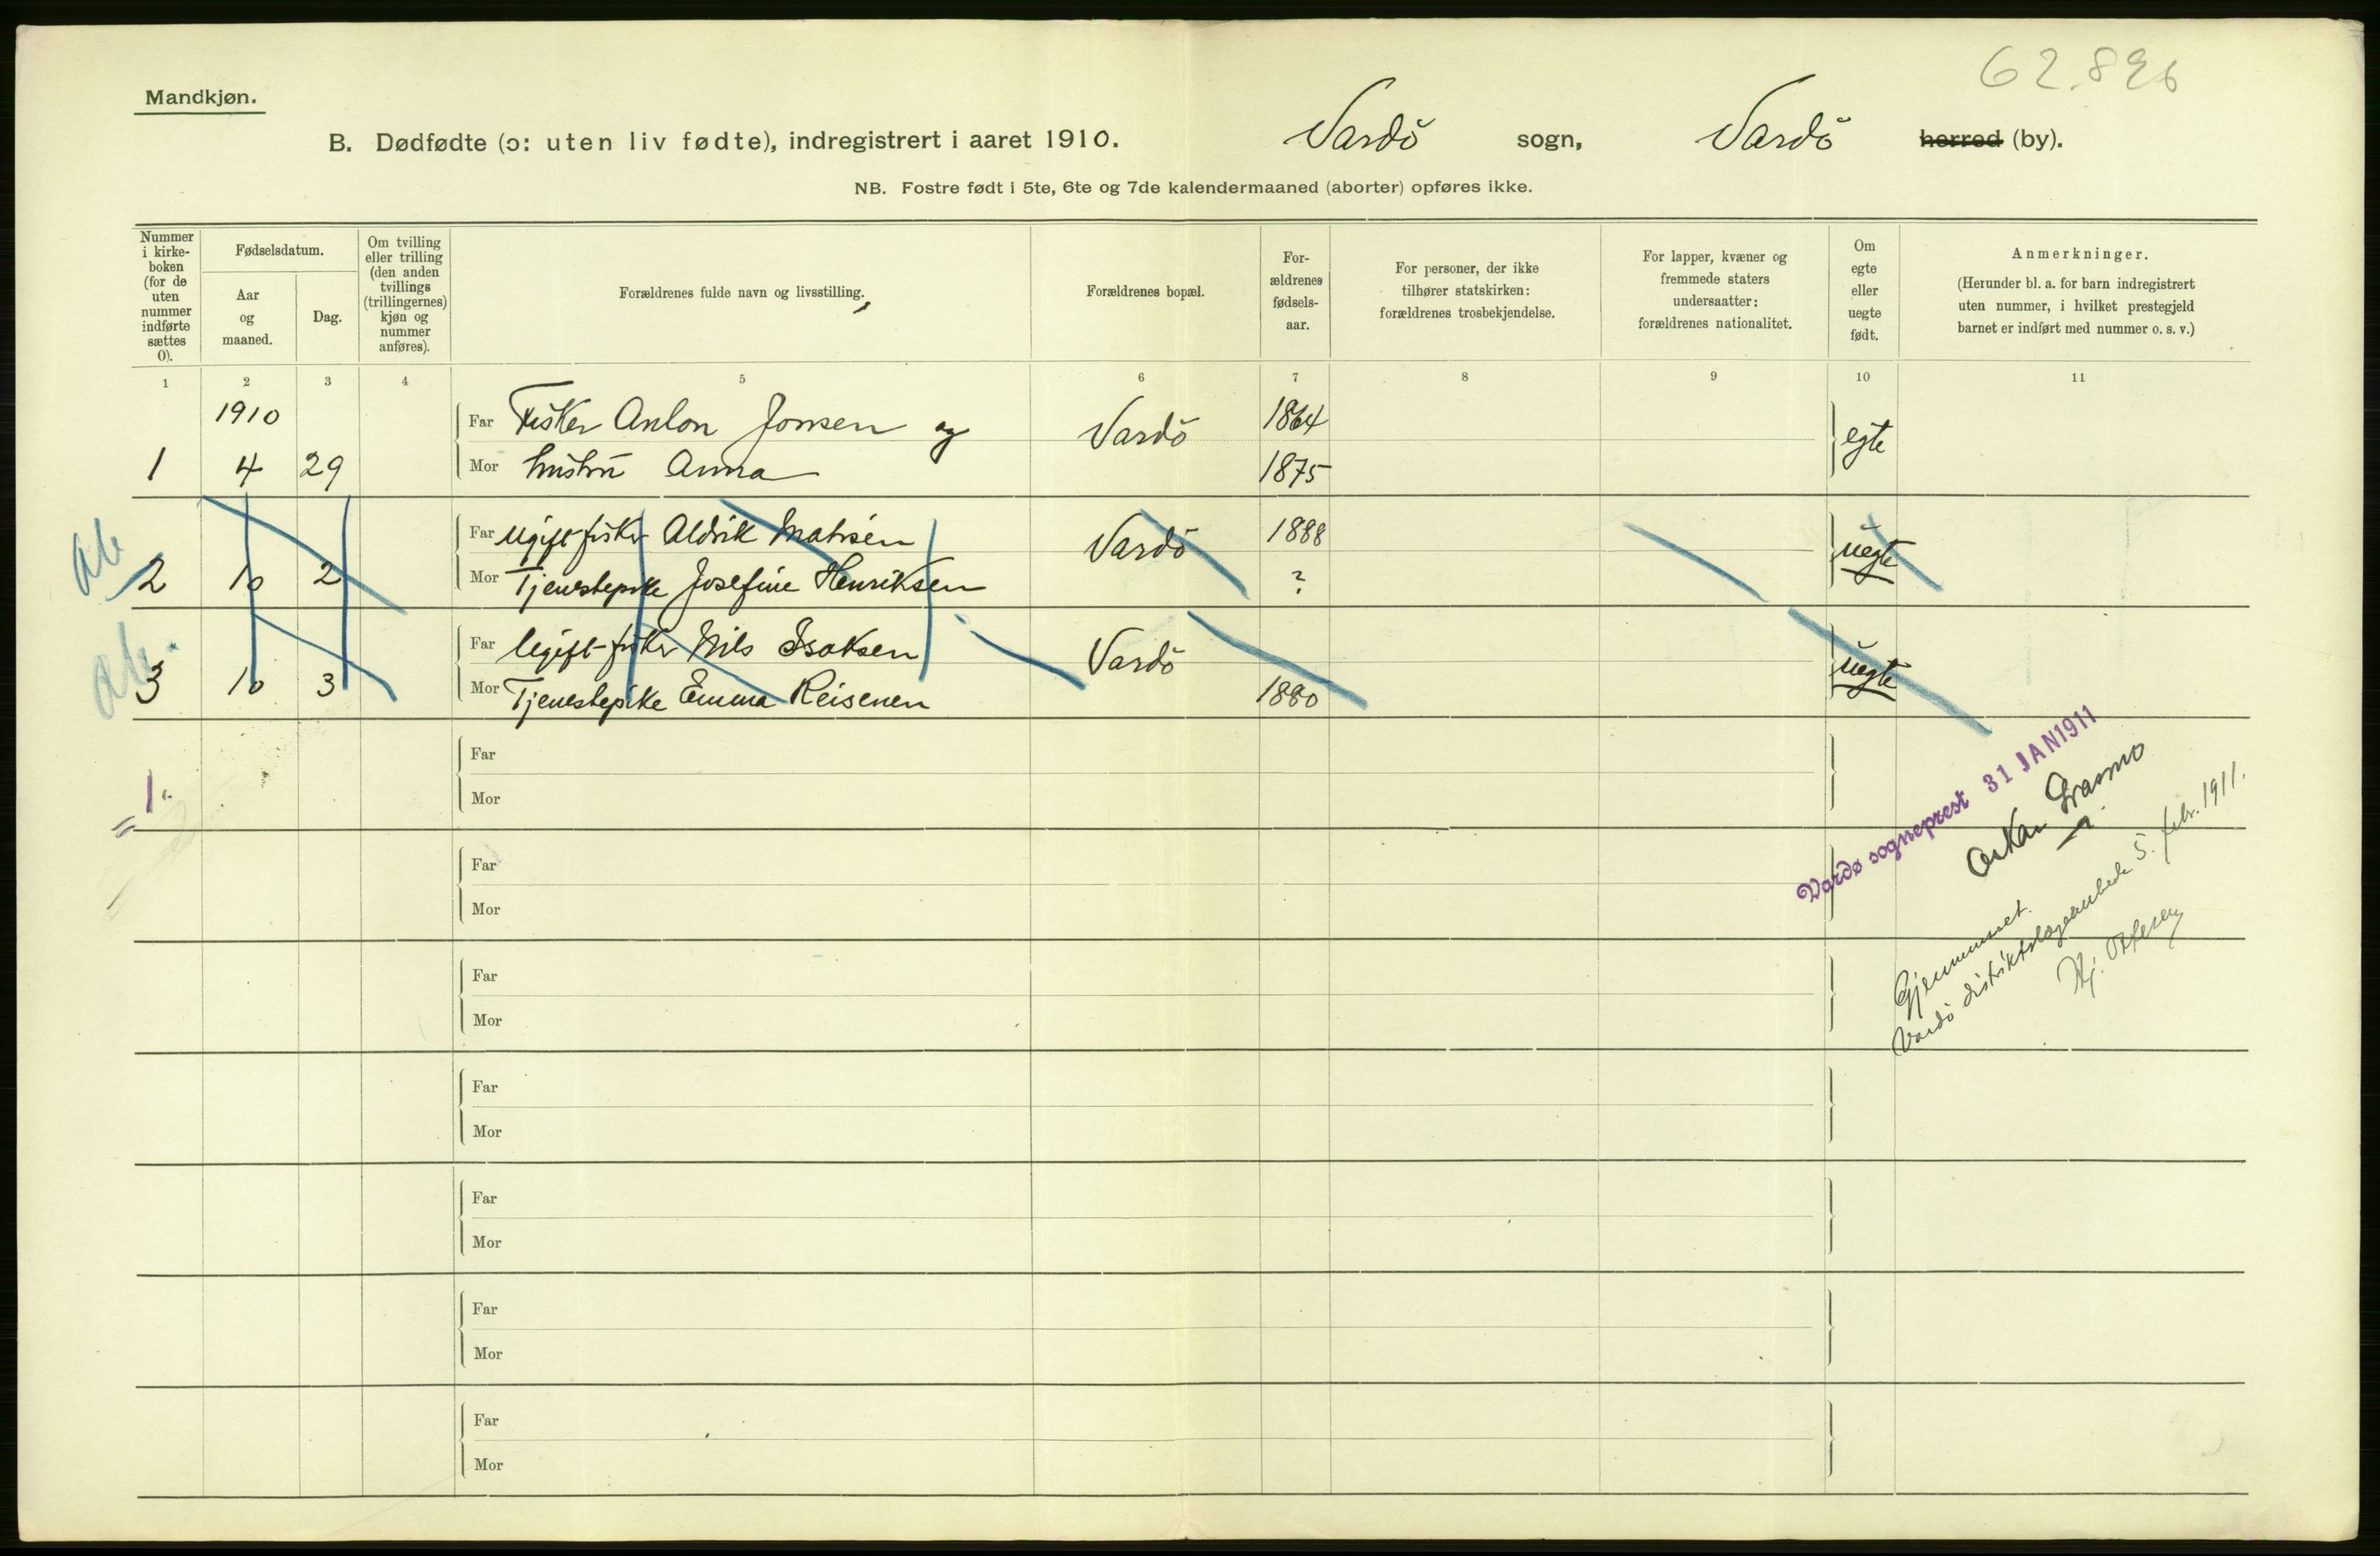 62.896
Mandkjøn.
B. Dødfødte (ɔ: uten liv fødte), indregistrert i aaret 1910. Vardö sogn, Vardö herred (by).
NB. Fostre født i 5te, 6te og 7de kalendermaaned (aborter) opføres ikke.
Nummer i kirke-boken (for de uten nummer indførte sættes 0).
Fødselsdatum.
Aar og maaned.
Dag.
Om tvilling eller trilling (den anden tvillings (trillingernes) kjøn og nummer anføres).
Forældrenes fulde navn og livsstilling.
Forældrenes bopæl.
For-ældrenes fødsels-aar.
For personer, der ikke tilhører statskirken: forældrenes trosbekjendelse.
For lapper, kvæner og fremmede staters undersaatter: forældrenes nationalitet.
Om egte eller uegte født.
Anmerkninger.
(Herunder bl. a. for barn indregistrert uten nummer, i hvilket prestegjeld barnet er indført med nummer o. s. v.)
1 2 3 4 5 6 7 8 9 10 11
1910 Far Fisker Anton Jonsen og Vardö 1864 egte
1 4 29 Mor hustru Anna 1875
ab
Far Ugift fisker Aldrik Mathisen Vardö 1888 uegte
2 10 2 Mor Tjenestepike Josefine Henriksen ?
ab.
Far Ugift fisker Nils Isaksen Vardö uegte
3 10 3 Mor Tjenestepike Emma Reisenen 1880
Far
1. Mor
Far
Mor
Far
Mor
Far
Mor
Far
Mor
Far
Mor
Far
Mor
Vardø sogneprest 31 JAN 1911
Gjennemset.
Vardö distriktslægeembede 5. febr. 1911.